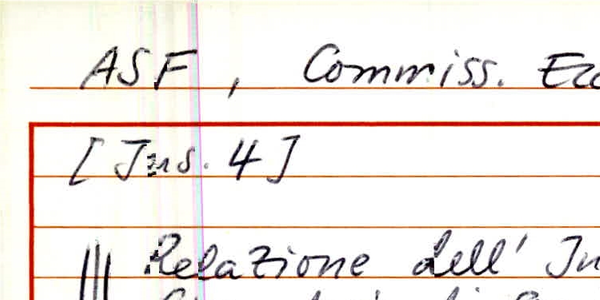 ASF, Commiss.
[Ins. 4]
Relazione dell'